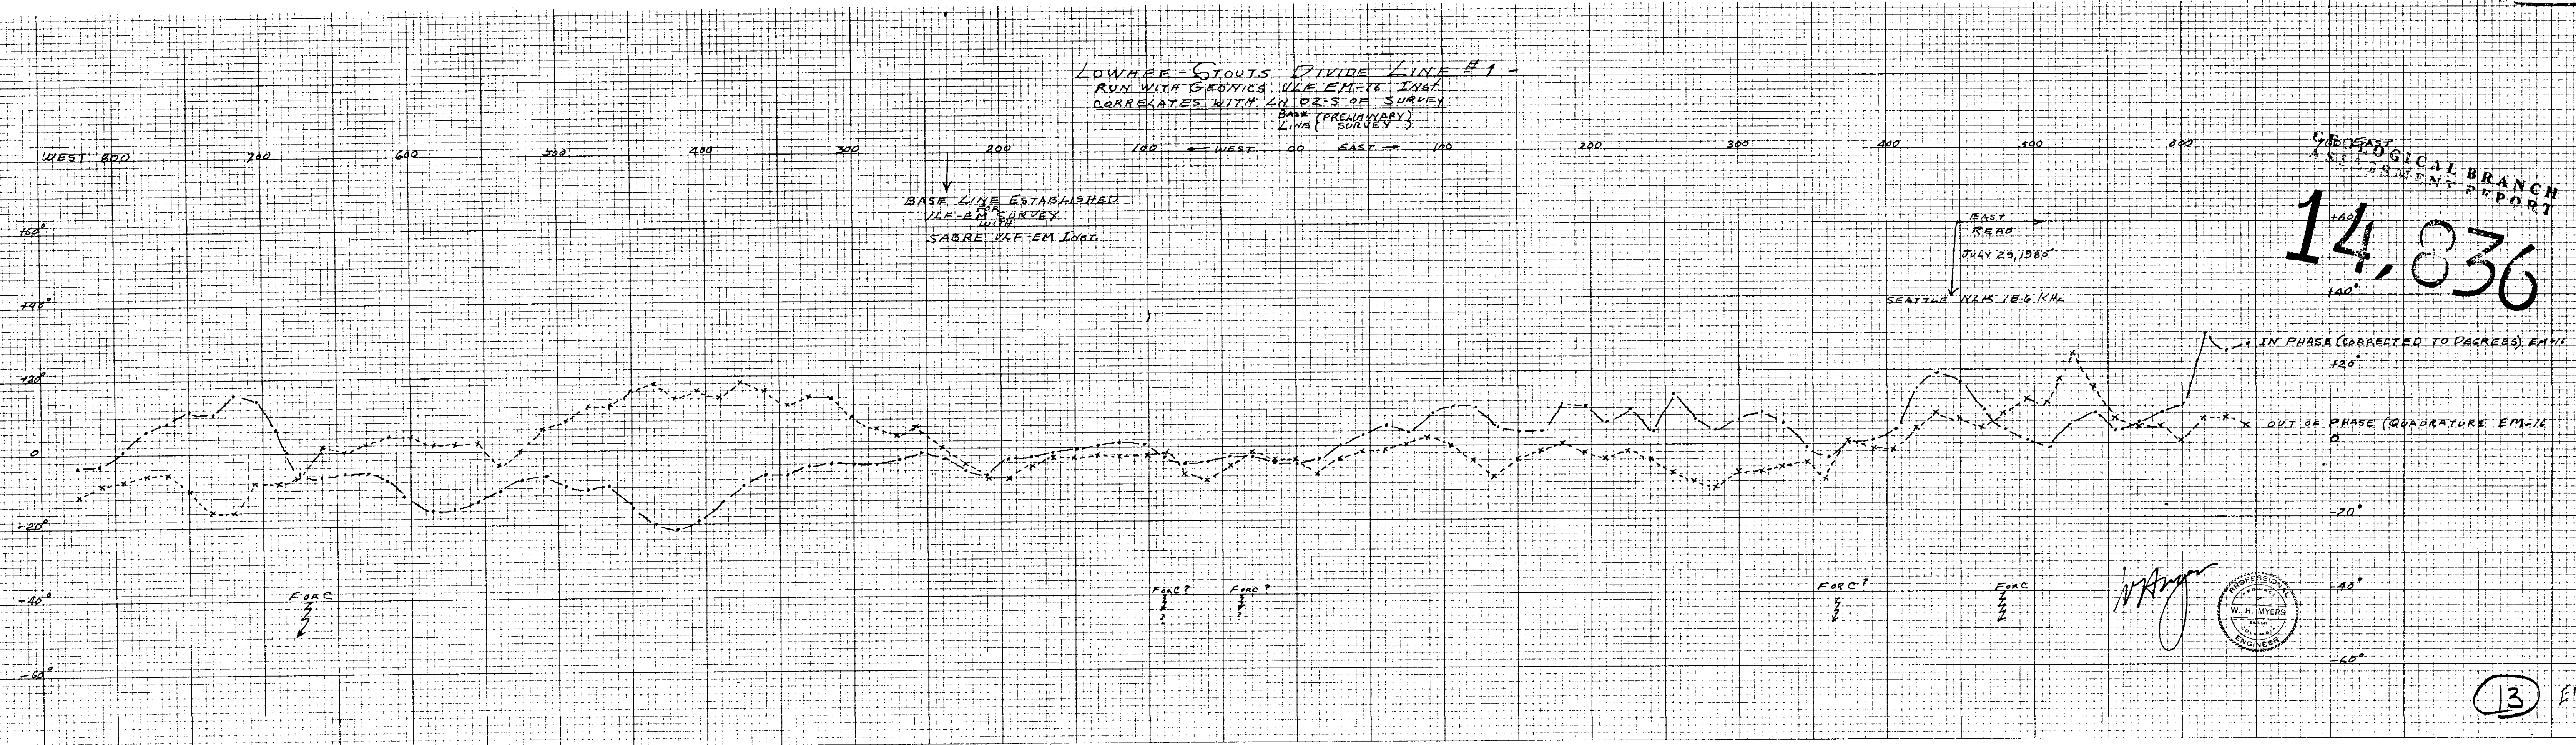 LOWHEE - STOUTS DIVIDE LINE #1 -
RUN WITH GEONICS VLF EM-16 INST
CORRELATES WITH LN 02-S OF SURVEY
BASE (PRELIMINARY)
LINE ( SURVEY )
WEST 800 700 600 500 400 300 200 100 ← WEST 00 EAST → 100 200 300 400 500 600 700 EAST
GEOLOGICAL BRANCH
ASSESSMENT REPORT
14,836
BASE LINE ESTABLISHED
FOR
VLF-EM SURVEY
WITH
SABRE VLF-EM INST.
EAST
READ
JULY 29, 1985
SEATTLE NLK 18.6 KHz
+60°
+40°
+20°
0
-20°
-40°
-60°
+60°
+40°
IN PHASE (CORRECTED TO DEGREES) EM-16
+20°
OUT OF PHASE (QUADRATURE EM-16
0
-20°
-40°
-60°
F OR C
F OR C ?
?
F OR C ?
?
F OR C ?
F OR C
PROFESSIONAL
W. H. MYERS
BRITISH
COLUMBIA
ENGINEER
13